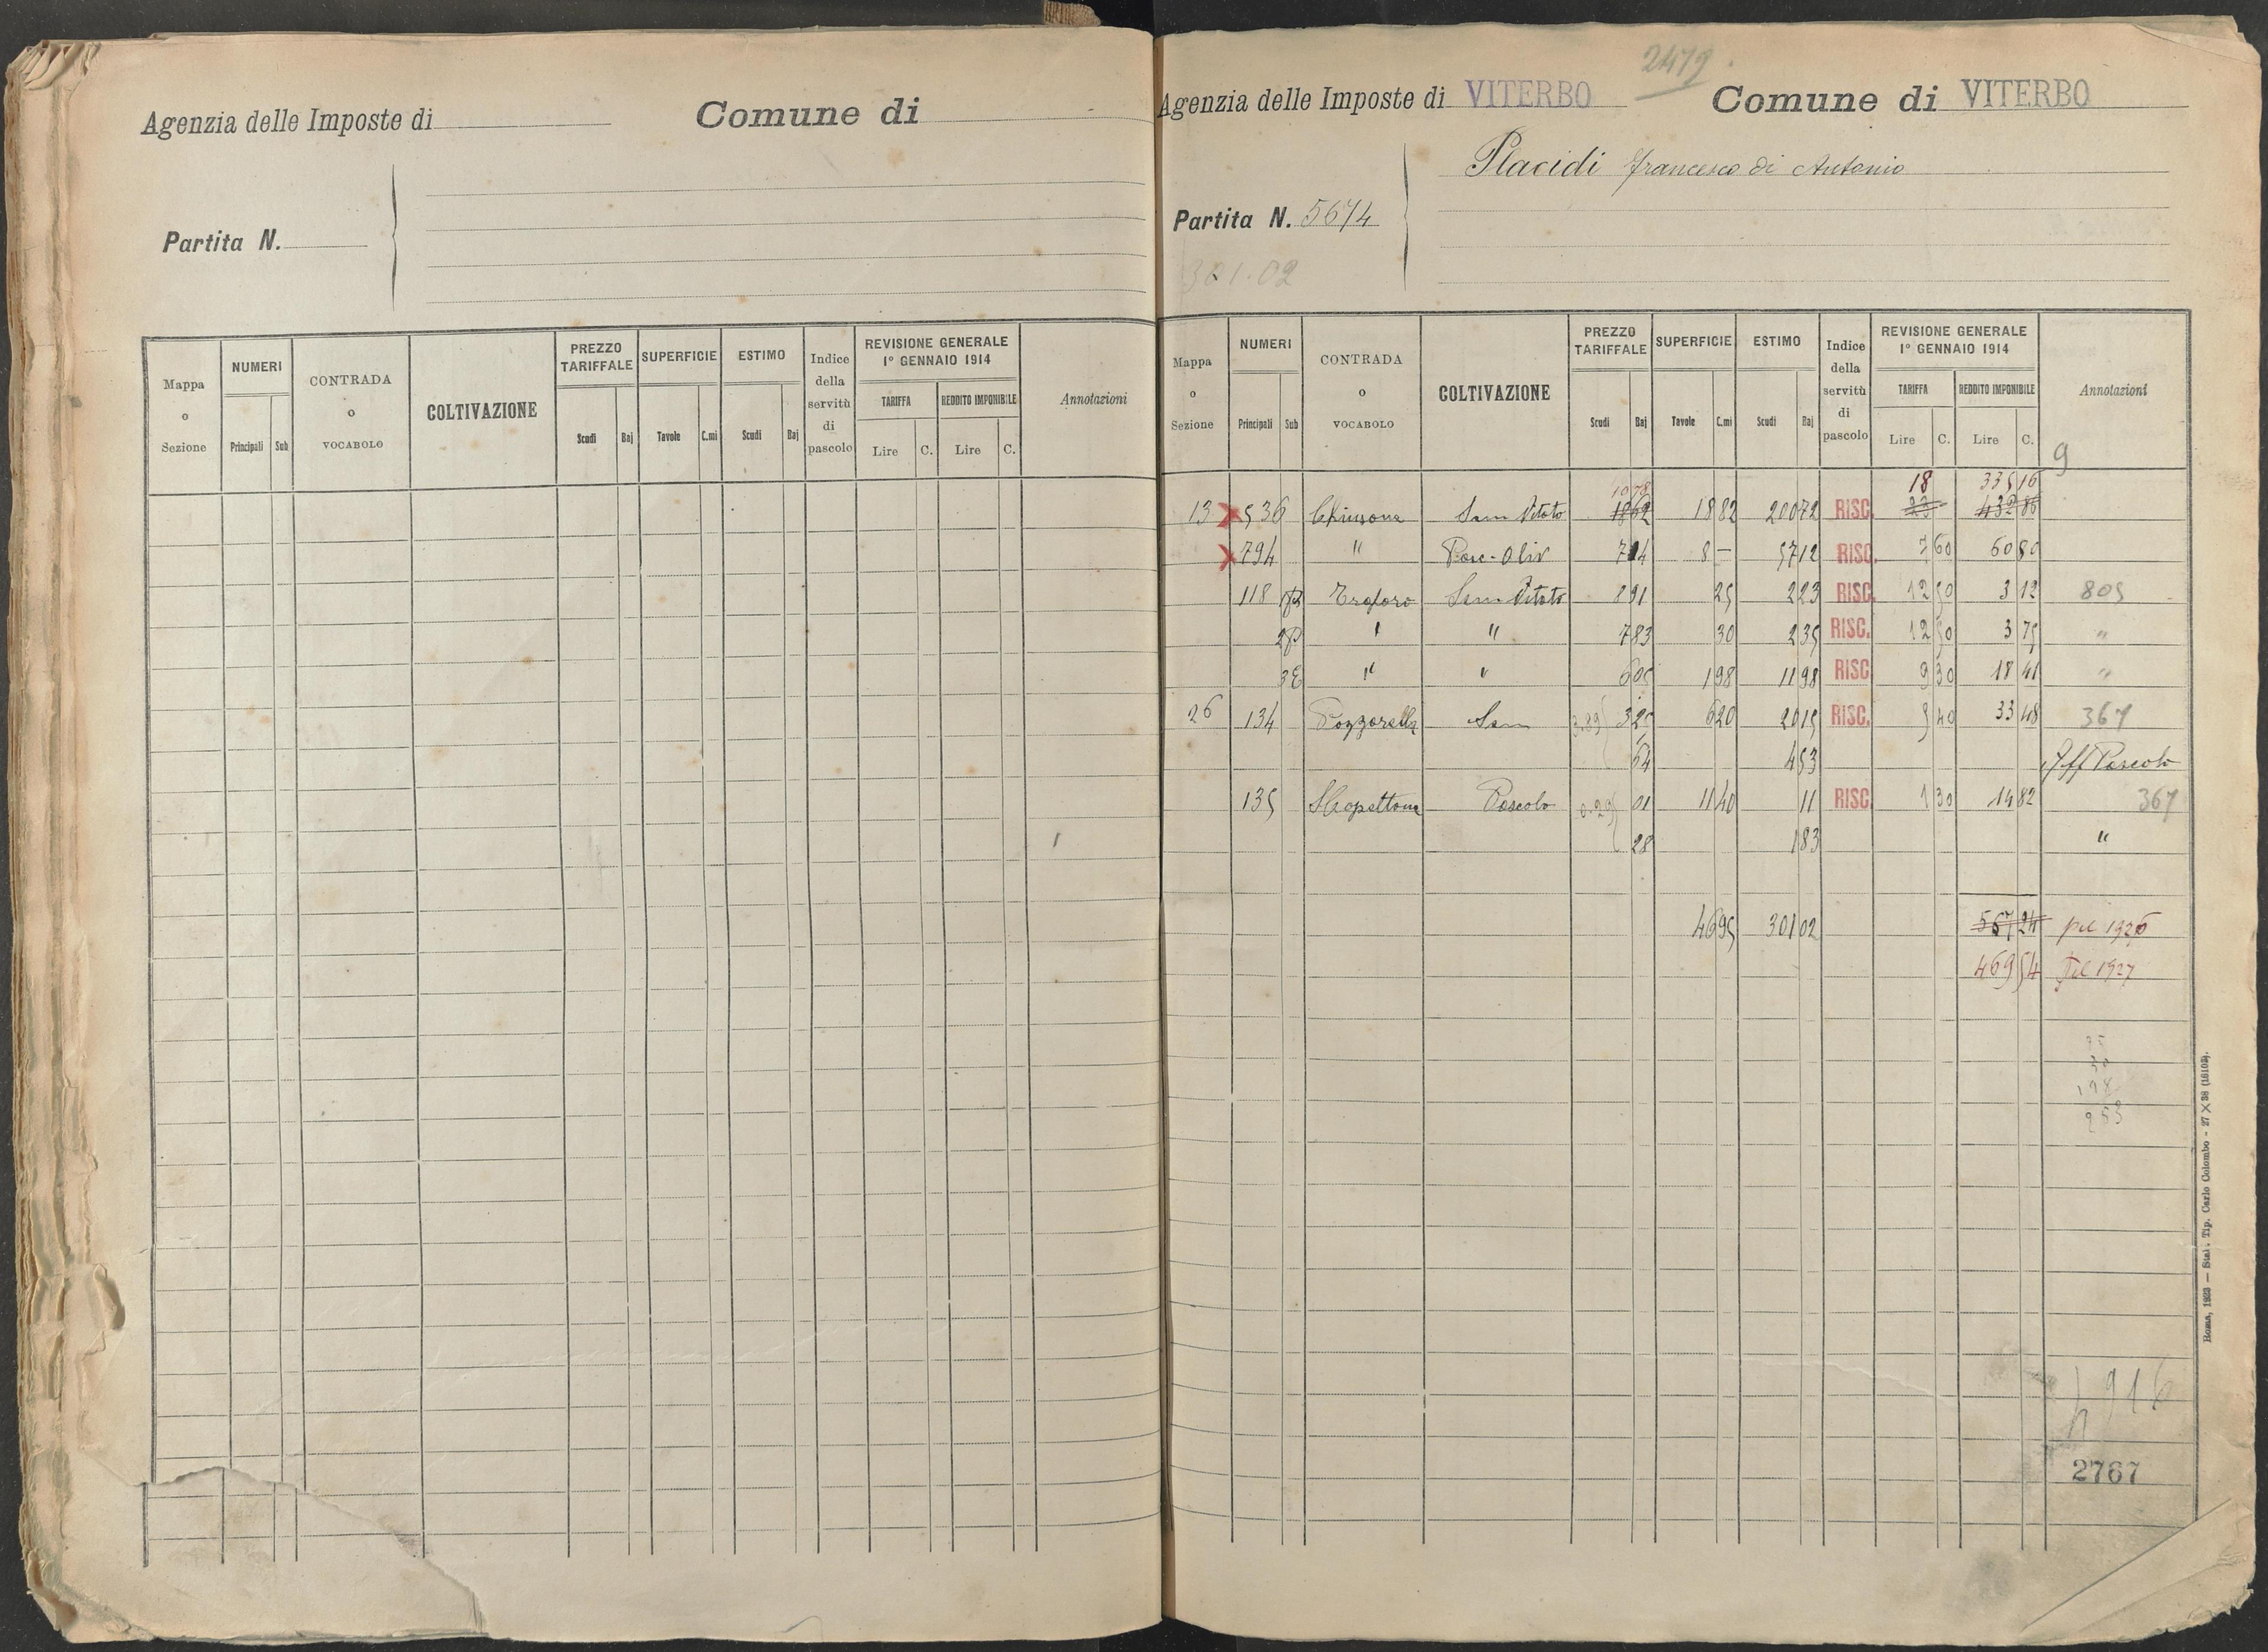 Agenzia delle Imposte di
Comune di
Partita N.
Mappa o Sezione
NUMERI
Principali Sub
CONTRADA o VOCABOLO
COLTIVAZIONE
PREZZO TARIFFALE
Scudi Baj
SUPERFICIE
Tavole C.mi
ESTIMO
Scudi Baj
Indice della servitù di pascolo
REVISIONE GENERALE 1° GENNAIO 1914
TARIFFA
Lire C.
REDDITO IMPONIBILE
Lire C.
Annotazioni
2479
Agenzia delle Imposte di VITERBO
Comune di VITERBO
Placidi Francesco di Antonio
Partita N. 5674
321.02
Mappa o Sezione
NUMERI
Principali Sub
CONTRADA o VOCABOLO
COLTIVAZIONE
PREZZO TARIFFALE
Scudi Baj
SUPERFICIE
Tavole C.mi
ESTIMO
Scudi Baj
Indice della servitù di pascolo
REVISIONE GENERALE 1° GENNAIO 1914
TARIFFA
Lire C.
REDDITO IMPONIBILE
Lire C.
Annotazioni
9
1078 18 335 16
13 X 536 Sem Vitato 18 82 200 72 RISC. 23 432 86
X 794 " Pasc-Oliv 7 14 8 — 57 12 RISC. 7 60 60 80
118 Sem Vitato 8 91 25 2 23 RISC. 12 50 3 12 805
" " 7 83 30 2 35 RISC. 12 50 3 75 "
" " 6 05 1 98 11 98 RISC. 9 30 18 41 "
26 134 Pozzarella Sem 3.89 3 25 6 20 20 15 RISC. 5 40 33 48 367
64 4 53 Aff Pascolo
135 Pascolo 0.29 01 11 40 11 RISC. 1 30 14 82 367
28 1 83 "
46 95 301 02 567 24 pel 1926
469 54 Pel 1927
25
30
198
253
Roma, 1923 — Stab. Tip. Carlo Colombo - 27 X 38 (16103).
2767